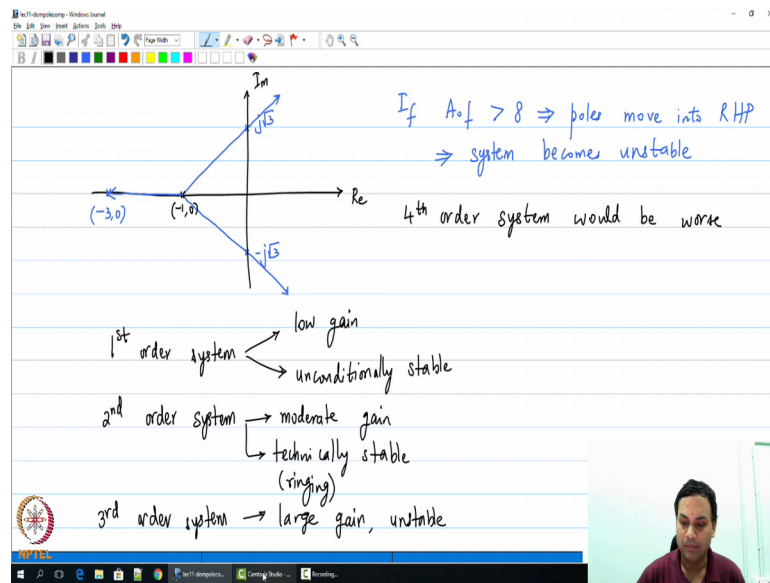 lec11-dompolecomp - Windows Journal
File Edit View Insert Actions Tools Help
Page Width
B I
Im
j√3
Re
(-3,0)
(-1,0)
-j√3
If Aof > 8 ⇒ poles move into RHP
⇒ system becomes unstable
4th order system would be worse
1st order system
low gain
unconditionally stable
2nd order system → moderate gain
technically stable
(ringing)
3rd order system → large gain, unstable
NPTEL
lec11-dompoleco...
Camtasia Studio - ...
Recording...